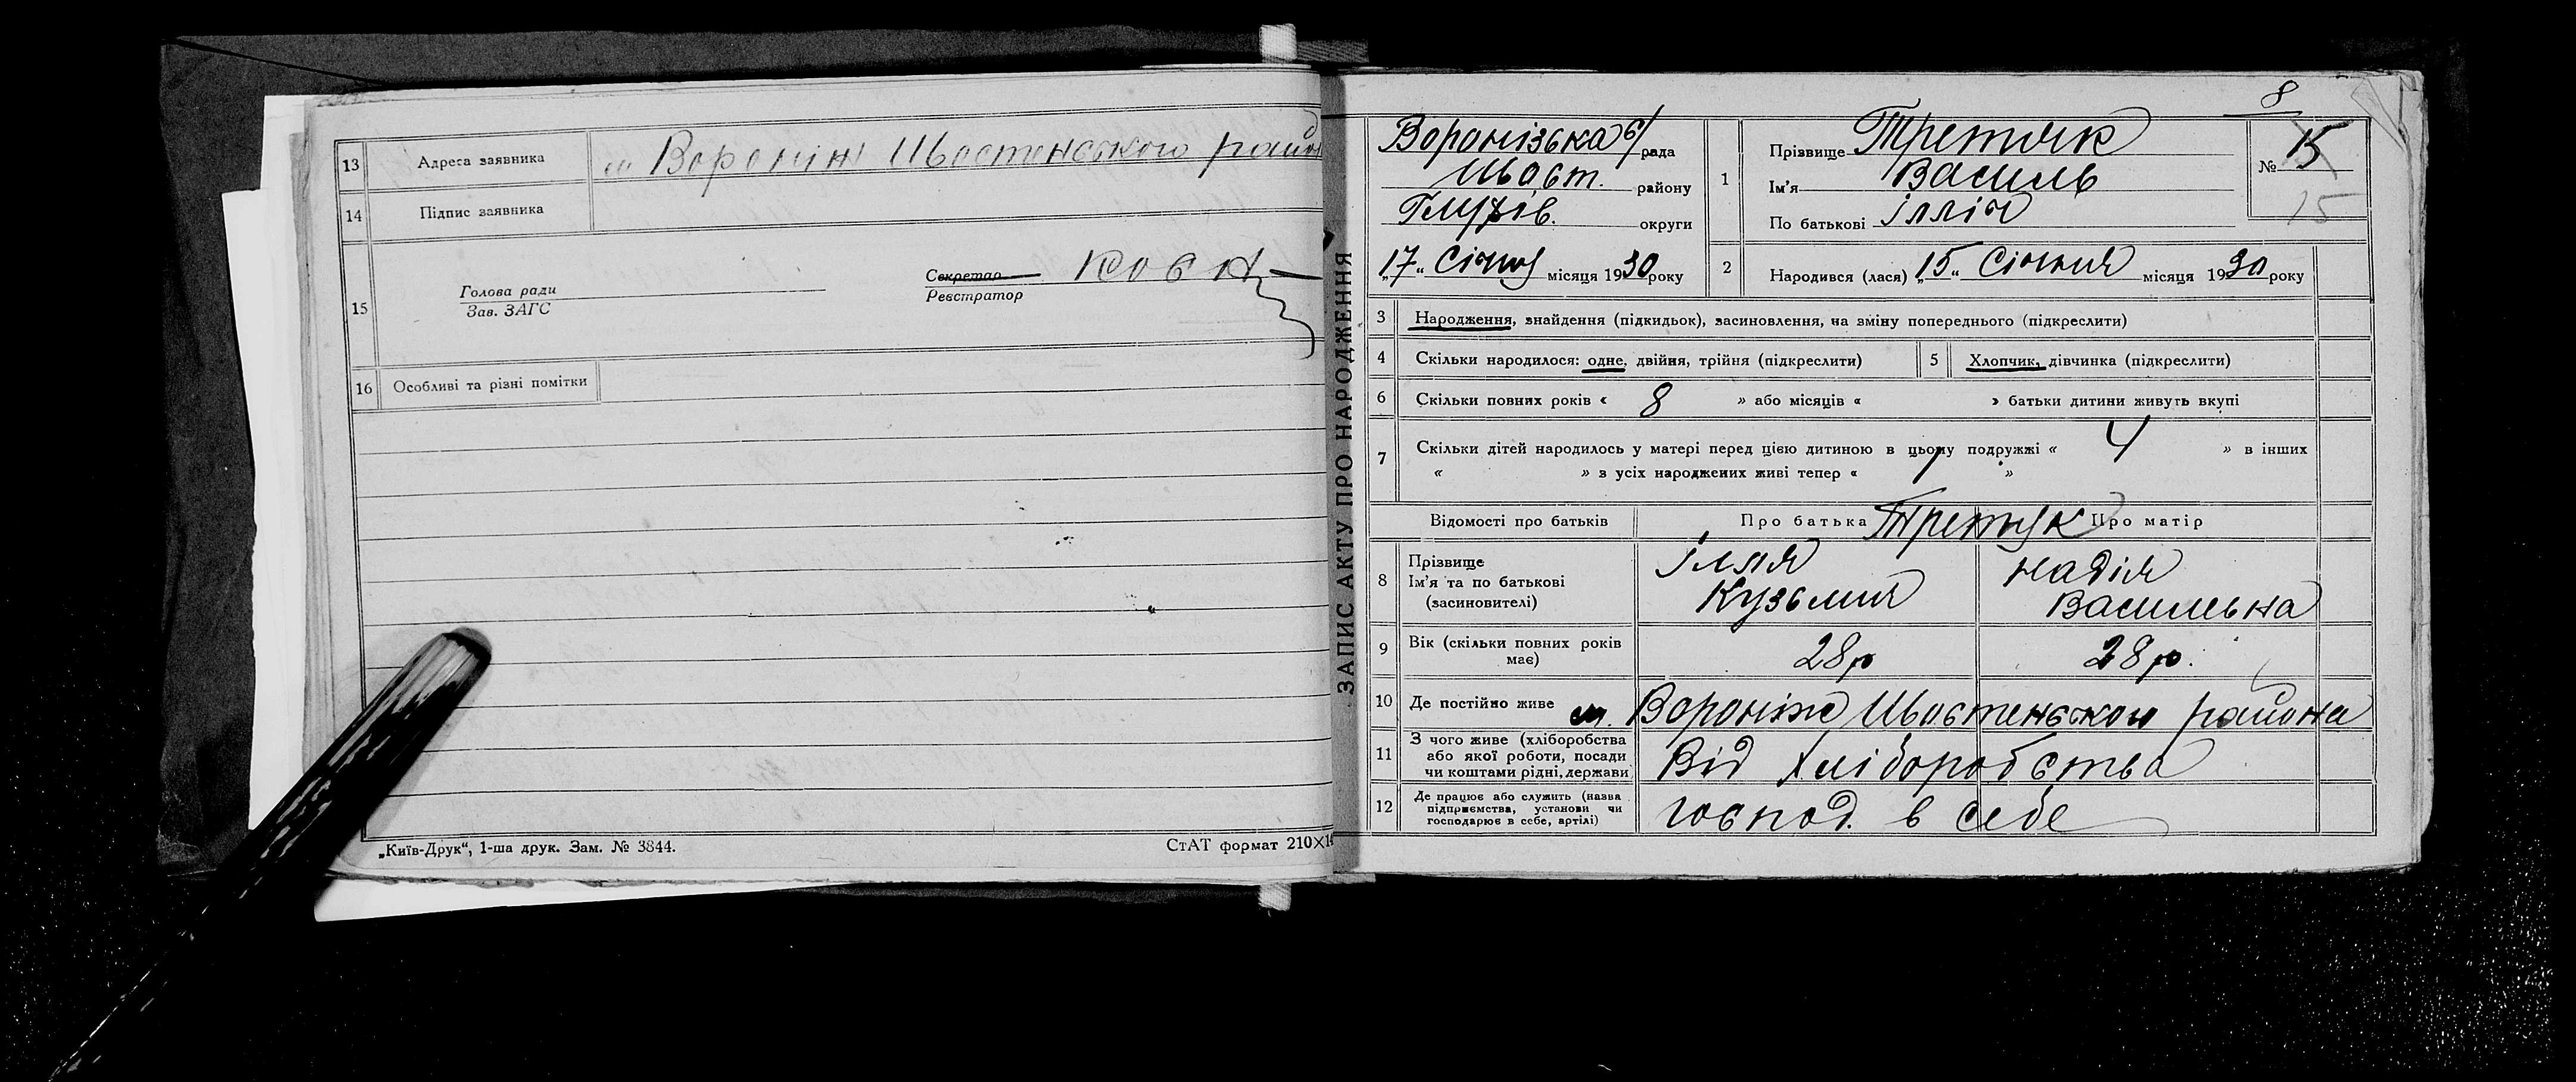 13 Адреса заявника м Вороніж Шостенського район
14 Підпис заявника
15 Голова ради
Зав. ЗАГС
Секретар
Реєстратор
16 Особливі та різні помітки
„Київ-Друк“, 1-ша друк. Зам. № 3844.
СтАТ формат 210×14
ЗАПИС АКТУ ПРО НАРОДЖЕННЯ
8
Воронізька с/рада
Шост. району
Глухів. округи
„17„ Січня місяця 1930 року
1 Прізвище Третяк
Ім’я Василь
По батькові Ілліч
№ 15
15
2 Народився (лася) „15„ Січня місяця 1930 року
3 Народження, знайдення (підкидьок), засиновлення, на зміну попереднього (підкреслити)
4 Скільки народилося: одне, двійня, трійня (підкреслити)
5 Хлопчик, дівчинка (підкреслити)
6 Скільки повних років « 8 » або місяців « » батьки дитини живуть вкупі
7 Скільки дітей народилось у матері перед цією дитиною в цьому подружжі « 4 » в інших
« » з усіх народжених живі тепер « 1 »
Відомості про батьків Про батька Третяк Про матір
8 Прізвище
Ім’я та по батькові
(засиновителі)
Ілля
Кузьмич
Надія
Васильвна
9 Вік (скільки повних років має) 28 р 28 р.
10 Де постійно живе м. Вороніж Шостенського района
11 З чого живе (хліборобства
або якої роботи, посади
чи коштами рідні, держави
Від Хліборобства
12 Де працює або служить (назва
підприємства, установи чи
господарює в себе, артілі)
господ. в себе